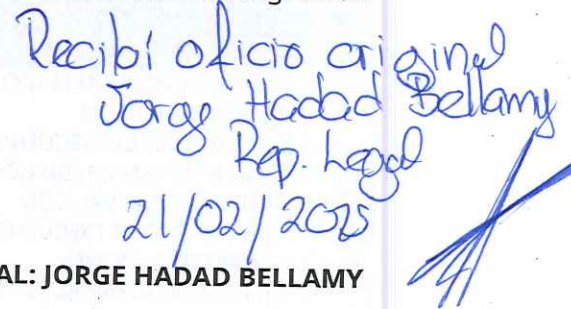 Recibí oficio original
Jorge Hadad Bellamy
Rep. Legal
21/02/2025
AL: JORGE HADAD BELLAMY